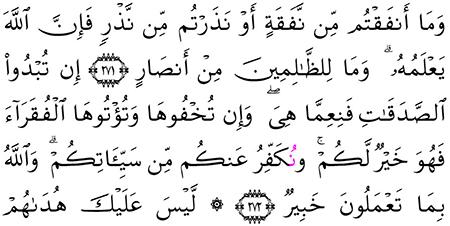 وَمَا أَنفَقْتُم مِّن نَّفَقَةٍ أَوْ نَذَرْتُم مِّن نَّذْرٍ فَإِنَّ ٱللَّهَ
يَعْلَمُهُۥ ۗ وَمَا لِلظَّـٰلِمِينَ مِنْ أَنصَارٍ ﴿٢٧١﴾ إِن تُبْدُوا۟
ٱلصَّدَقَـٰتِ فَنِعِمَّا هِىَ ۖ وَإِن تُخْفُوهَا وَتُؤْتُوهَا ٱلْفُقَرَآءَ
فَهُوَ خَيْرٌ لَّكُمْ ۚ وَنُكَفِّرُ عَنكُم مِّن سَيِّـَٔاتِكُمْ ۗ وَٱللَّهُ
بِمَا تَعْمَلُونَ خَبِيرٌ ﴿٢٧٢﴾ ۞ لَّيْسَ عَلَيْكَ هُدَىٰهُمْ